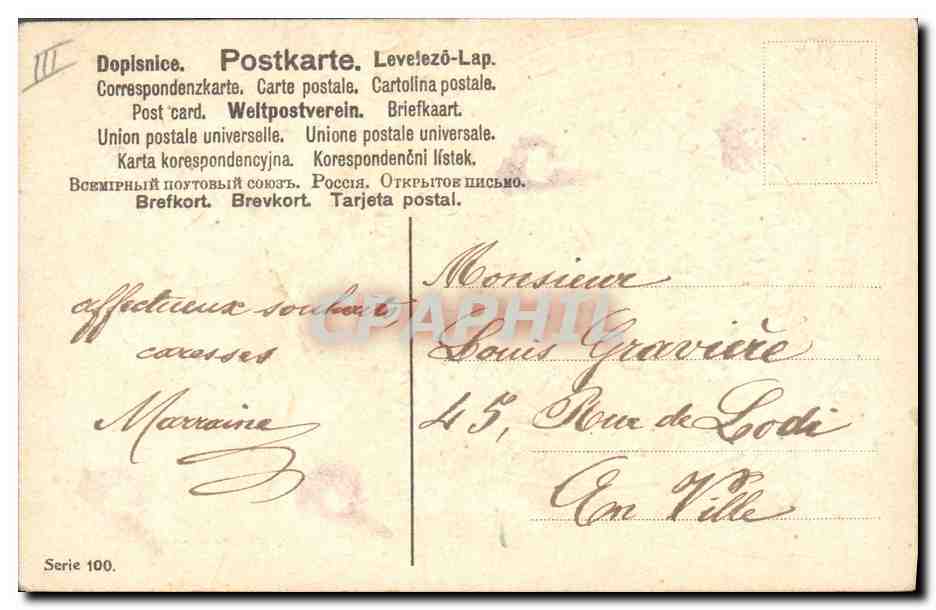 III
Dopisnice. Postkarte. Levelező-Lap.
Correspondenzkarte. Carte postale. Cartolina postale.
Post card. Weltpostverein. Briefkaart.
Union postale universelle. Unione postale universale.
Karta korespondencyjna. Korespondenční lístek.
Всемірный поутовый союзъ. Россія. Открытое письмо.
Brefkort. Brevkort. Tarjeta postal.
Monsieur
affectueux souhaits
Louis Gravière
caresses
45, Rue de Lodi
Marraine
En Ville
CPAPHIL
Serie 100.